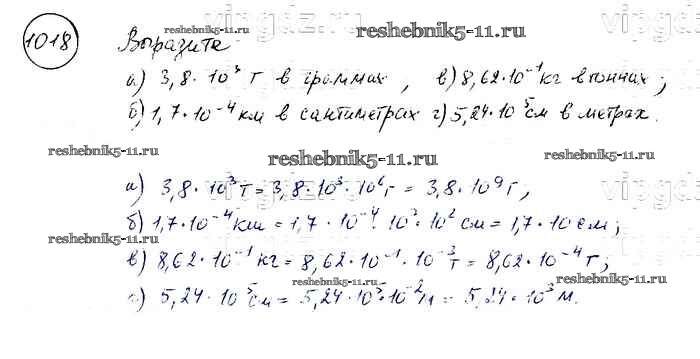 1018
Выразите
а) 3,8 · 10³ т в граммах, в) 8,62 · 10⁻¹ кг в тоннах;
б) 1,7 · 10⁻⁴ км в сантиметрах г) 5,24 · 10⁵ см в метрах.
а) 3,8 · 10³ т = 3,8 · 10³ · 10⁶ г = 3,8 · 10⁹ г,
б) 1,7 · 10⁻⁴ км = 1,7 · 10⁻⁴ · 10³ · 10² см = 1,7 · 10 см;
в) 8,62 · 10⁻¹ кг = 8,62 · 10⁻¹ · 10⁻³ т = 8,62 · 10⁻⁴ т;
г) 5,24 · 10⁵ см = 5,24 · 10⁵ · 10⁻² м = 5,24 · 10³ м.
reshebnik5-11.ru
reshebnik5-11.ru
reshebnik5-11.ru
reshebnik5-11.ru
reshebnik5-11.ru
reshebnik5-11.ru
reshebnik5-11.ru